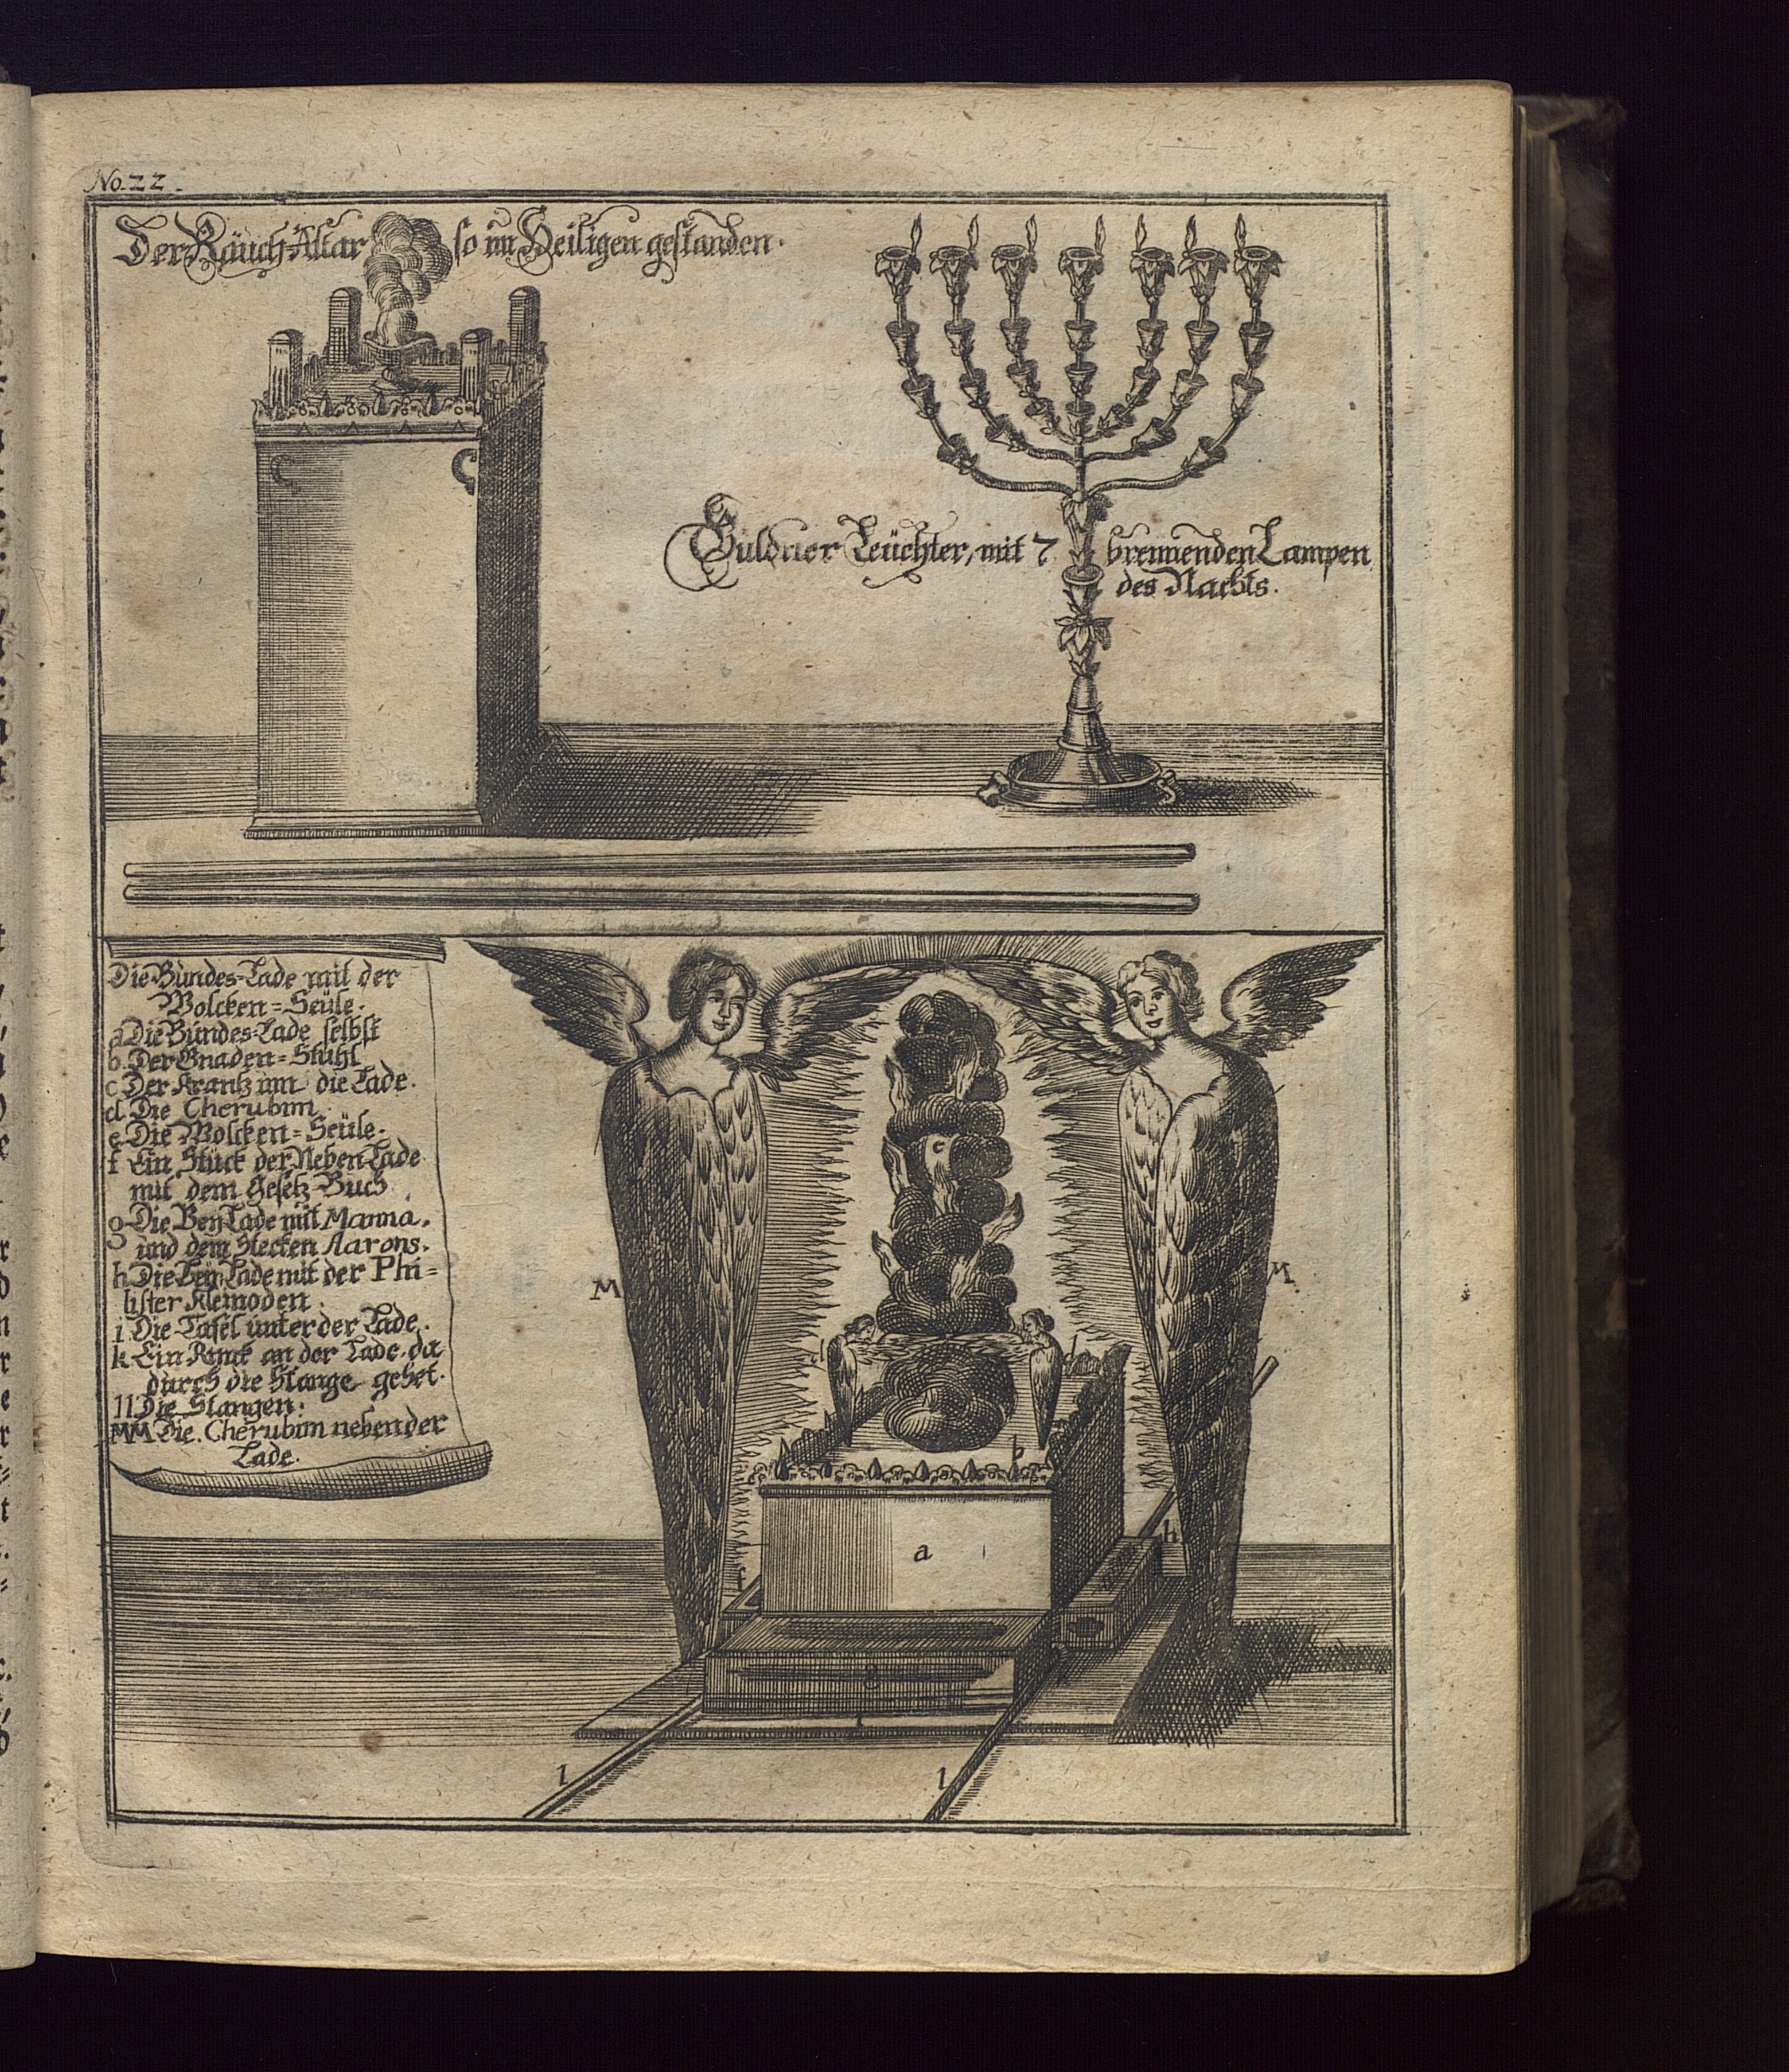 No. 22.
Der Räuch-Altar so im Heiligen gestanden.
Güldner Leüchter, mit 7 brennenden Lampen
des Nachts.
Die Bundes-Lade mit der
Wolcken-Seüle.
a Die Bundes-Lade selbst
b. Der Gnaden-Stuhl
c Der Krantz um die Lade.
d Die Cherubim.
e Die Wolcken-Seüle.
f Ein Stück der Neben Lade
mit dem Gesetz-Buch
g Die Bey Lade mit Manna,
und dem Stecken Aarons.
h Die Bey Lade mit der Phi=
lister Kleinoden.
i Die Tafel unter der Lade.
k Ein Rinck an der Lade, da
durch die Stange gehet.
ll Die Stangen.
MM Die Cherubim neben der
Lade.
e
M
M
d
b
a
f
h
g
i
l
l